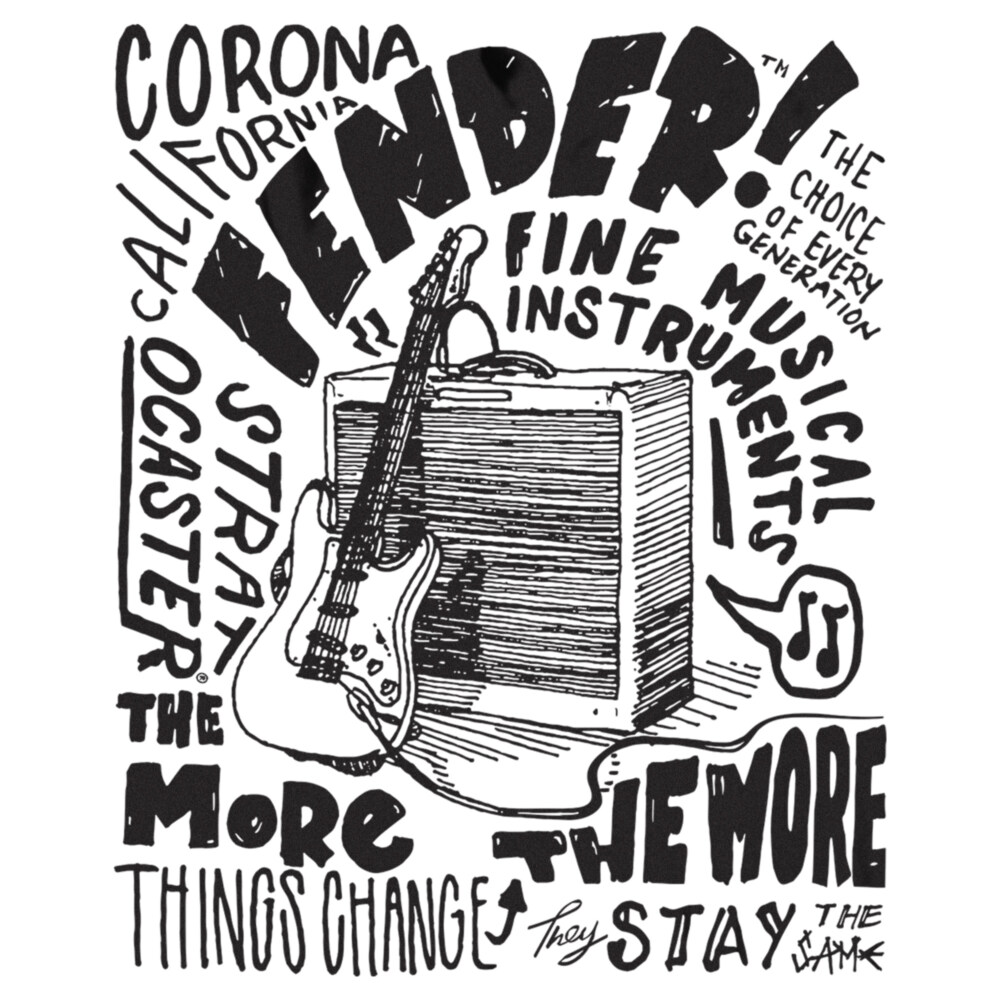 CORONA
CALIFORNIA
FENDER!™
THE
CHOICE
OF EVERY
GENERATION
FINE
INSTRUMENTS
MUSICAL
STRAT
OCASTER®
THE
MORE
THINGS CHANGE
THE MORE
They STAY THE
SAME